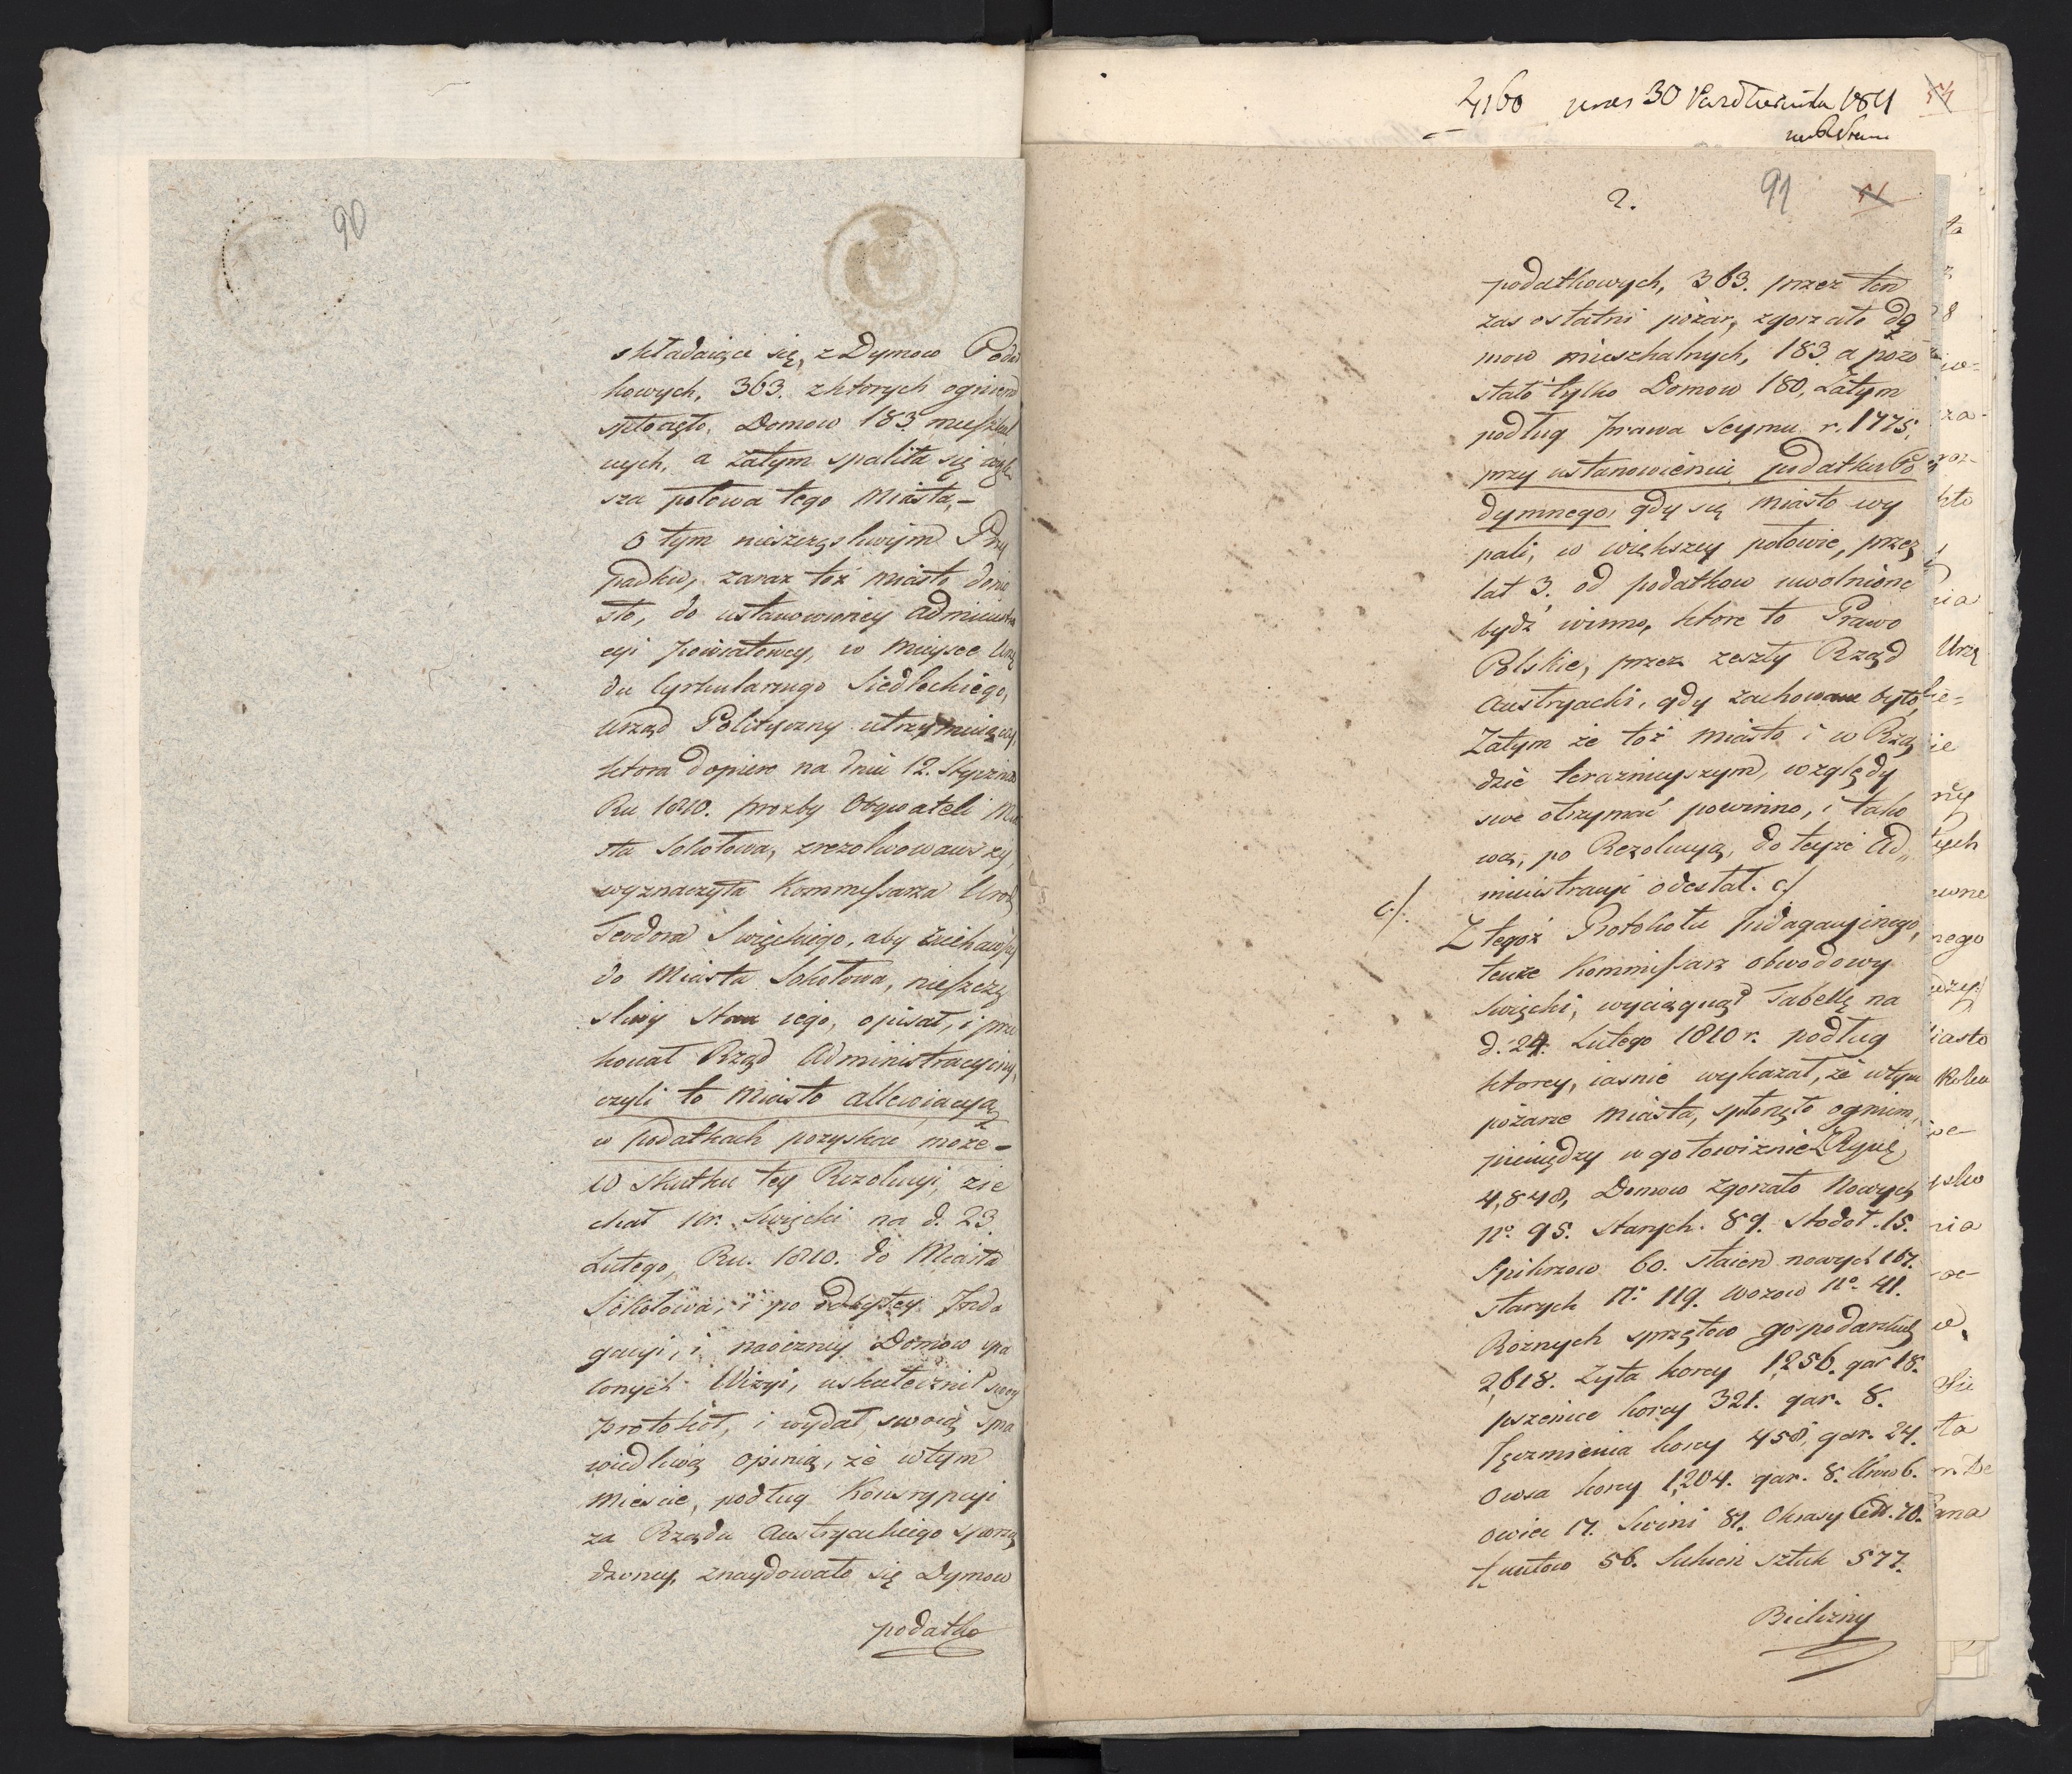 90
składaiące się, z Dymow Podat
kowych, 363. z ktorych ogniem
spłonęło, Domow 183 mieszkal
nych, a zatym spaliła się więk
sza połowa tego Miasta,-
O tym nieszczęsliwym Przy
padku, zaraz toż Miasto donio
sło, do ustanowioney administra
cyi Powiatowey, w mieysce Urzę
du Cyrkularnego Siedleckiego,
Urząd Polityczny utrzymuiącey
ktora dopiero na dniu 12. Stycznia
Ru 1810. prozby Obywateli Mia
sta Sokołowa, zrezolwowawszy,
wyznaczyła Kommissarza Urod
Teodora Swięckiego, aby ziechawszy
do Miasta Sokołowa, nieszczę
sliwy Stan iego, opisał, i prze
konał Rząd Administracyiny,
czyli to Miasto allewiacyą
w podatkach pozyskać może-
W skutku tey Rezolucyi, zie
chał Ur. Swięcki na d. 23.
Lutego, Ru. 1810. do Miasta
Sokołowa, i po odbytey Inda
gacyi, i naoczney Domow spa
lonych Wizyi, uskutecznił swoy
protokół, i wydał swoią spra
wiedliwą opinią, że w tym
Miescie, podług Konskrypcyi
za Rządu Austryackiego sporzą
dzoney, znaydowało się Dymow
podatko
4160 30 Pazdziernika 1811
2.
91
podatkowych, 363. przez ten
zas ostatni pożar, zgorzało Do
mow mieszkalnych, 183 a pozo
stało tylko Domow 180, Zatym
podług Prawa Seymu r. 1775,
przy ustanowieniu podatku Po
dymnego, gdy się miasto wy
pali, w większey połowie, przez
lat 3. od podatkow uwolnione
bydź winno, ktore to Prawo
Polskie, przez zeszły Rząd
Austryacki, gdy zachowane było,
Zatym że toż miasto i w Rzą
dzie teraznieyszym, względy
swe otrzymać powinno, i tako
wą, po Rezolucyą, do teyże Ad„
ministracyi odesłał. c/
c./. Z tegoż Protokołu Indagacyinego,
tenże Kommissarz obwodowy
Swięcki, wyciągnął Tabellę na
d. 24. Lutego 1810 r. podług
ktorey, iasnie wykazał, że w tym
pożarze Miasta, spłonęło ogniem,
pieniędzy w gotowiznie
4,848, Domow zgorzało Nowych
No. 95. Starych. 89. Stodoł. 15.
Spikrzow 60. Staien nowych 167.
starych No 119. Wozow No. 41.
Rożnych sprzętow gospodarskich
2,618. Zyta korcy 1,256. gar 18.
pszenice korcy 321. gar. 8.
Jęczmienia korcy 458, gar. 24.
Owsa korcy 1,204. gar. 8. Krow 6.
Owiec 17. Swini 81. Okrasy 20.
funtow 56. Sukien sztuk 577.
Bielizny